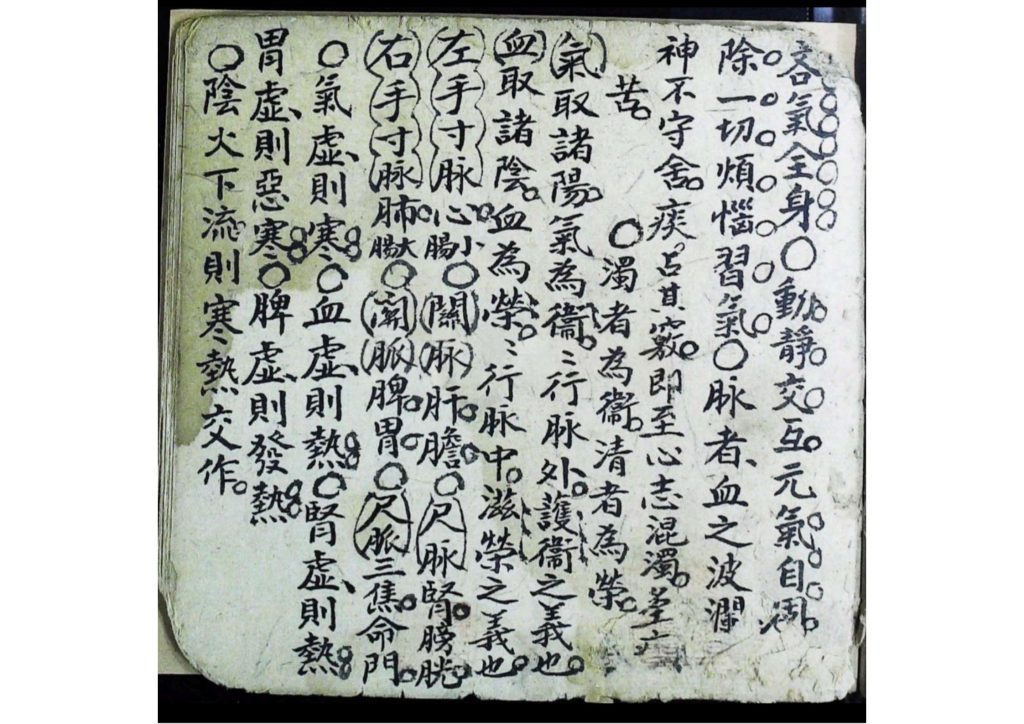 吝氣全身○動靜交互元氣自周
除一切煩惱習氣○脉者、血之波瀾
神不守舍。痰。占其竅。即至心志混濁。
苦。○濁者為衞。清者為榮。
氣取諸陽。氣為衞。〻行脉外。護衞之義也。
血取諸陰。血為榮。〻行脉中。滋榮之義也。
左手寸脉心小腸○關脉肝膽○尺脉腎膀胱。
右手寸脉肺大腸○關脈脾胃。○尺脈三焦命門。
○氣虛則寒○血虛則熱○腎虛則熱
胃虛則惡寒○脾虛則發熱
○陰火下流則寒熱交作。